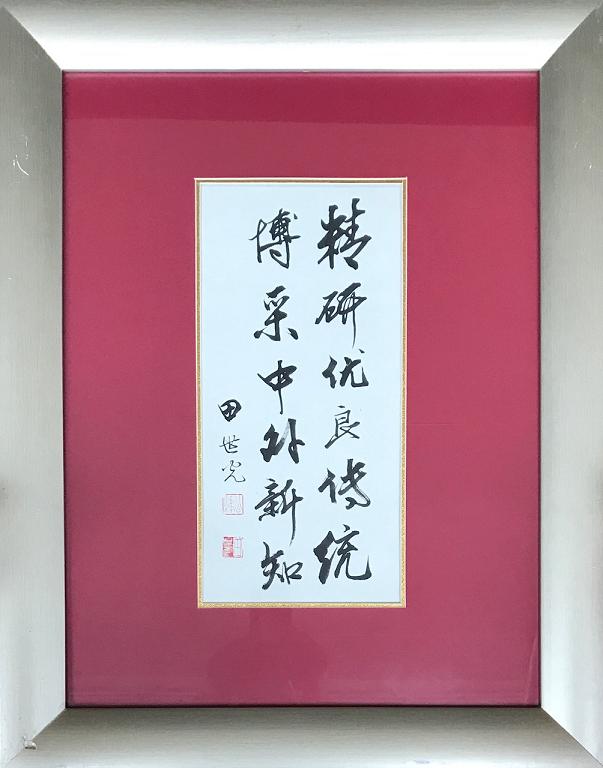 精研优良傳统
博采中外新知
田世光